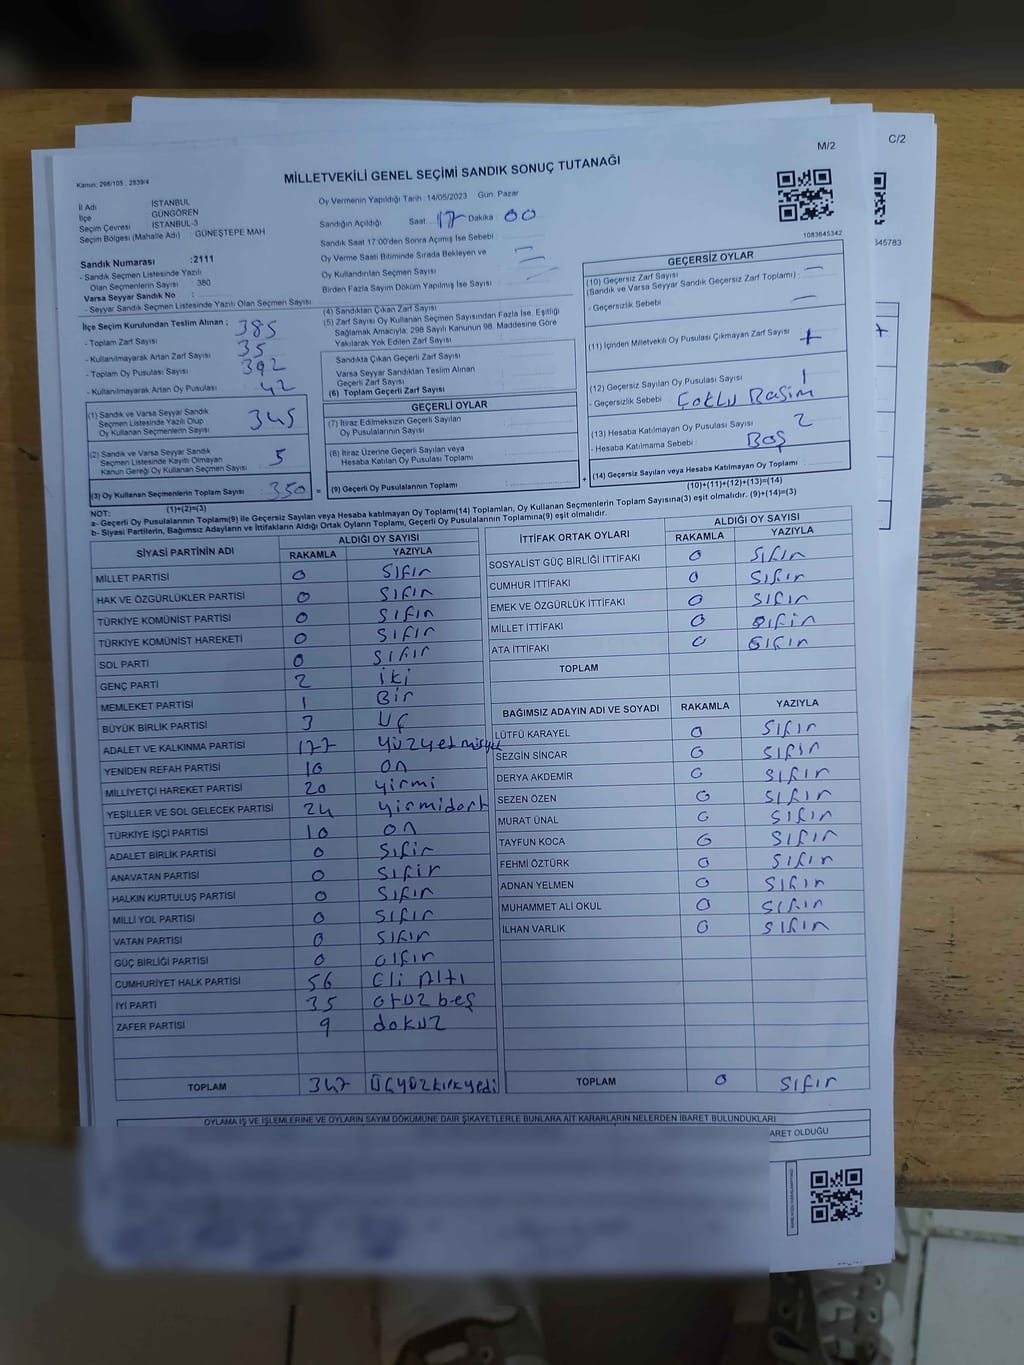 M/2
C/2
Kanun: 298/105 , 2839/4
MİLLETVEKİLİ GENEL SEÇİMİ SANDIK SONUÇ TUTANAĞI
İl Adı İSTANBUL
İlçe GÜNGÖREN
Seçim Çevresi İSTANBUL-3
Seçim Bölgesi (Mahalle Adı) : GÜNEŞTEPE MAH
Oy Vermenin Yapıldığı Tarih : 14/05/2023 Gün: Pazar
Sandığın Açıldığı Saat: 17 Dakika : 00
Sandık Saat 17:00'den Sonra Açımış İse Sebebi :
Oy Verme Saati Bitiminde Sırada Bekleyen ve
Oy Kullandırılan Seçmen Sayısı :
Birden Fazla Sayım Döküm Yapılmış İse Sayısı :
1083645342
45783
Sandık Numarası :2111
- Sandık Seçmen Listesinde Yazılı
Olan Seçmenlerin Sayısı : 380
Varsa Seyyar Sandık No :
- Seyyar Sandık Seçmen Listesinde Yazılı Olan Seçmen Sayısı :
İlçe Seçim Kurulundan Teslim Alınan ;
- Toplam Zarf Sayısı : 385
- Kullanılmayarak Artan Zarf Sayısı : 35
- Toplam Oy Pusulası Sayısı : 392
- Kullanılmayarak Artan Oy Pusulası : 42
(1) Sandık ve Varsa Seyyar Sandık
Seçmen Listesinde Yazılı Olup
Oy Kullanan Seçmenlerin Sayısı : 345
(2) Sandık ve Varsa Seyyar Sandık
Seçmen Listesinde Kayıtlı Olmayan
Kanun Gereği Oy Kullanan Seçmen Sayısı : 5
(3) Oy Kullanan Seçmenlerin Toplam Sayısı : 350
(1)+(2)=(3)
(4) Sandıktan Çıkan Zarf Sayısı :
(5) Zarf Sayısı Oy Kullanan Seçmen Sayısından Fazla İse, Eşitliği
Sağlamak Amacıyla, 298 Sayılı Kanunun 98. Maddesine Göre
Yakılarak Yok Edilen Zarf Sayısı :
Sandıkta Çıkan Geçerli Zarf Sayısı :
Varsa Seyyar Sandıktan Teslim Alınan
Geçerli Zarf Sayısı :
(6) Toplam Geçerli Zarf Sayısı :
GEÇERLİ OYLAR
(7) İtiraz Edilmeksizin Geçerli Sayılan
Oy Pusulalarının Sayısı :
(8) İtiraz Üzerine Geçerli Sayılan veya
Hesaba Katılan Oy Pusulası Toplamı :
= (9) Geçerli Oy Pusulalarının Toplamı :
GEÇERSİZ OYLAR
(10) Geçersiz Zarf Sayısı
(Sandık ve Varsa Seyyar Sandık Geçersiz Zarf Toplamı) :
- Geçersizlik Sebebi :
(11) İçinden Milletvekili Oy Pusulası Çıkmayan Zarf Sayısı :
(12) Geçersiz Sayılan Oy Pusulası Sayısı : 1
- Geçersizlik Sebebi : Çoklu Basım
(13) Hesaba Katılmayan Oy Pusulası Sayısı : 2
- Hesaba Katılmama Sebebi : Boş
+ (14) Geçersiz Sayılan veya Hesaba Katılmayan Oy Toplamı :
(10)+(11)+(12)+(13)=(14)
NOT:
a- Geçerli Oy Pusulalarının Toplamı(9) ile Geçersiz Sayılan veya Hesaba katılmayan Oy Toplamı(14) Toplamları, Oy Kullanan Seçmenlerin Toplam Sayısına(3) eşit olmalıdır. (9)+(14)=(3)
b- Siyasi Partilerin, Bağımsız Adayların ve İttifakların Aldığı Ortak Oyların Toplamı, Geçerli Oy Pusulalarının Toplamına(9) eşit olmalıdır.
SİYASİ PARTİNİN ADI ALDIĞI OY SAYISI
RAKAMLA YAZIYLA
MİLLET PARTİSİ 0 Sıfır
HAK VE ÖZGÜRLÜKLER PARTİSİ 0 Sıfır
TÜRKİYE KOMÜNİST PARTİSİ 0 Sıfır
TÜRKİYE KOMÜNİST HAREKETİ 0 Sıfır
SOL PARTİ 0 Sıfır
GENÇ PARTİ 2 iki
MEMLEKET PARTİSİ 1 Bir
BÜYÜK BİRLİK PARTİSİ 3 Uç
ADALET VE KALKINMA PARTİSİ 177
YENİDEN REFAH PARTİSİ 10 on
MİLLİYETÇİ HAREKET PARTİSİ 20 yirmi
YEŞİLLER VE SOL GELECEK PARTİSİ 24 yirmidört
TÜRKİYE İŞÇİ PARTİSİ 10 on
ADALET BİRLİK PARTİSİ 0 Sıfir
ANAVATAN PARTİSİ 0 Sıfir
HALKIN KURTULUŞ PARTİSİ 0 Sıfır
MİLLİ YOL PARTİSİ 0 Sıfır
VATAN PARTİSİ 0 Sıfır
GÜÇ BİRLİĞİ PARTİSİ 0 sıfır
CUMHURİYET HALK PARTİSİ 56 Eli Altı
İYİ PARTİ 35 otuz beş
ZAFER PARTİSİ 9 dokuz
TOPLAM 347 Üçyüzkırkyedi
İTTİFAK ORTAK OYLARI ALDIĞI OY SAYISI
RAKAMLA YAZIYLA
SOSYALİST GÜÇ BİRLİĞİ İTTİFAKI 0 Sıfır
CUMHUR İTTİFAKI 0 Sıfır
EMEK VE ÖZGÜRLÜK İTTİFAKI 0 Sıfır
MİLLET İTTİFAKI 0 Sıfır
ATA İTTİFAKI 0 Sıfır
TOPLAM
BAĞIMSIZ ADAYIN ADI VE SOYADI RAKAMLA YAZIYLA
LÜTFÜ KARAYEL 0 Sıfır
SEZGİN SİNCAR 0 Sıfır
DERYA AKDEMİR 0 Sıfır
SEZEN ÖZEN 0 Sıfır
MURAT ÜNAL 0 Sıfır
TAYFUN KOCA 0 Sıfır
FEHMİ ÖZTÜRK 0 Sıfır
ADNAN YELMEN 0 Sıfır
MUHAMMET ALİ OKUL 0 Sıfır
İLHAN VARLIK 0 Sıfır
TOPLAM 0 Sıfır
OYLAMA İŞ VE İŞLEMLERİNE VE OYLARIN SAYIM DÖKÜMÜNE DAİR ŞİKAYETLERLE BUNLARA AİT KARARLARIN NELERDEN İBARET BULUNDUKLARI
ARET OLDUĞU